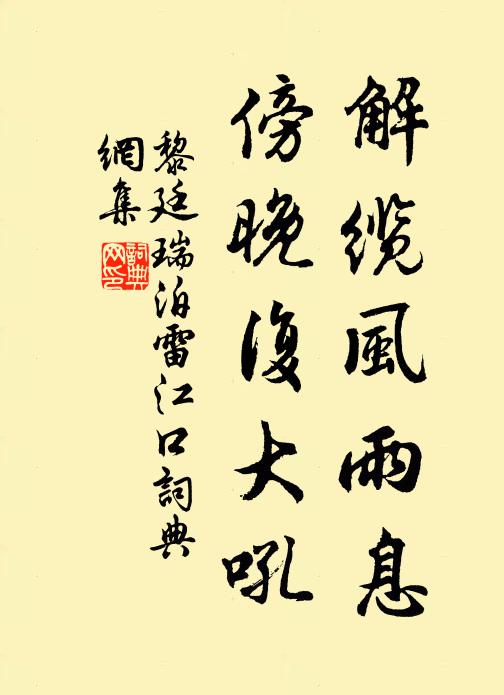 解缆風雨息
傍晚復大吼
黎廷瑞泊雷江口詞典
網集
詞典
网印